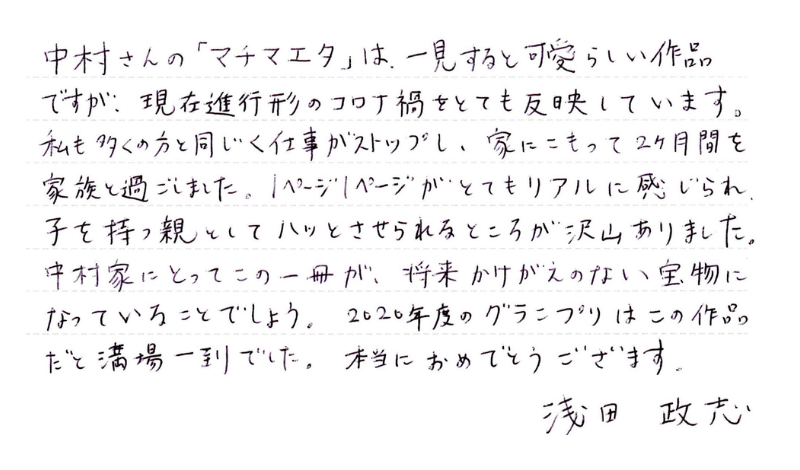 中村さんの「マチマエタ」は、一見すると可愛らしい作品
ですが、現在進行形のコロナ禍をとても反映しています。
私も多くの方と同じく仕事がストップし、家にこもって2ケ月間を
家族と過ごしました。1ページ1ページがとてもリアルに感じられ、
子を持つ親としてハッとさせられるところが沢山ありました。
中村家にとってこの一冊が、将来かけがえのない宝物に
なっていることでしょう。2020年度のグランプリはこの作品
だと満場一到でした。本当におめでとうございます。
浅田 政志